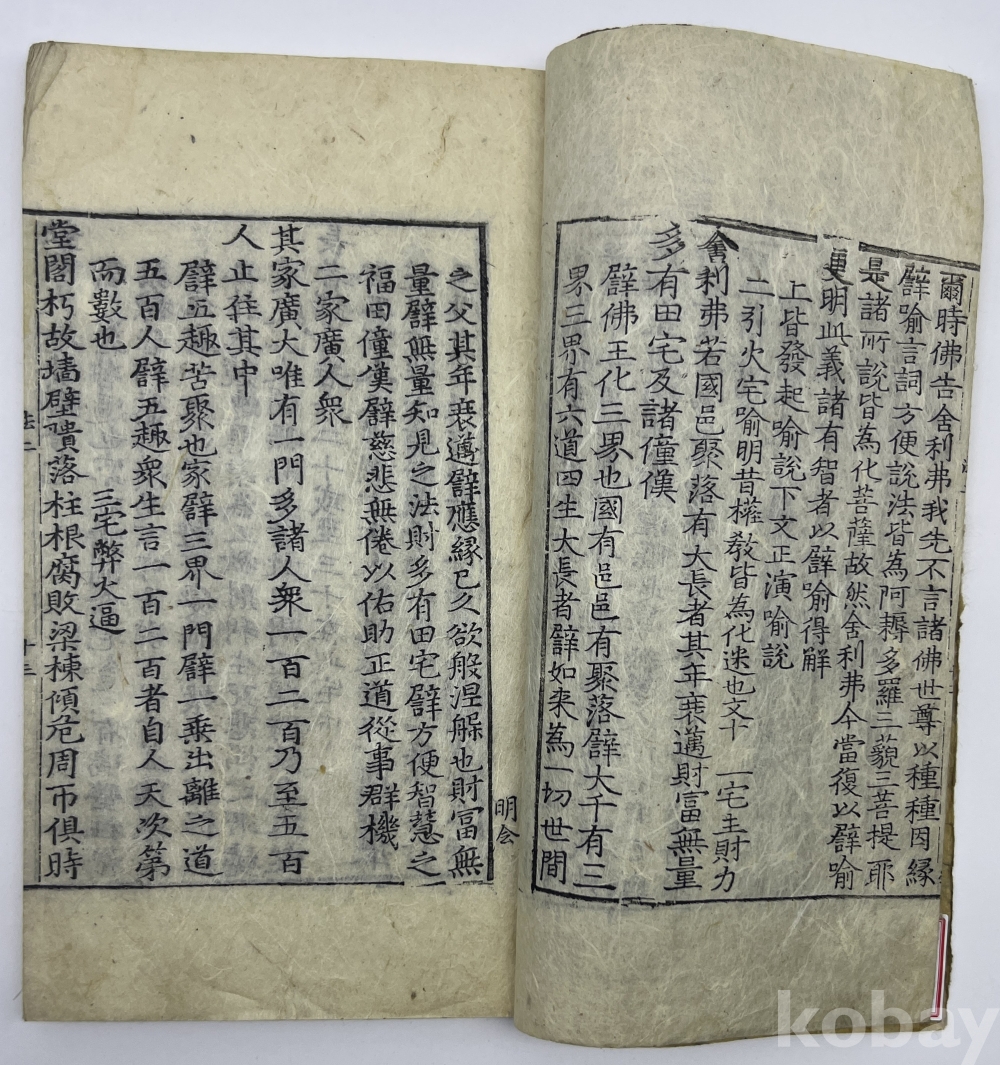 爾時佛告舍利弗我先不言諸佛世尊以種種因縁
譬喻言詞方便說法皆為阿耨多羅三藐三菩提耶
是諸所說皆為化菩薩故然舍利弗今當復以譬喻
更明此義諸有智者以譬喻得解
上皆發起喻說下文正演喻說
二引火宅喻明昔權教皆為化迷也文十 一宅主財力
舍利弗若國邑聚落有大長者其年衰邁財富無量
多有田宅及諸僮僕
譬佛王化三界也國有邑邑有聚落譬大千有三
界三界有六道四生大長者譬如来為一切世間
之父其年衰邁譬應縁已久欲般涅槃也財富無
量譬無量知見之法財多有田宅譬方便智慧之
福田僮僕譬慈悲無倦以佑助正道從事群機
二家廣人衆
其家廣大唯有一門多諸人衆一百二百乃至五百
人止住其中
譬五趣苦聚也家譬三界一門譬一乗出離之道
五百人譬五趣衆生言一百二百者自人天次第
而數也 三宅弊火逼
堂閣朽故墻壁隤落柱根腐敗梁棟傾危周帀俱時
法二
十三
明会
kobay